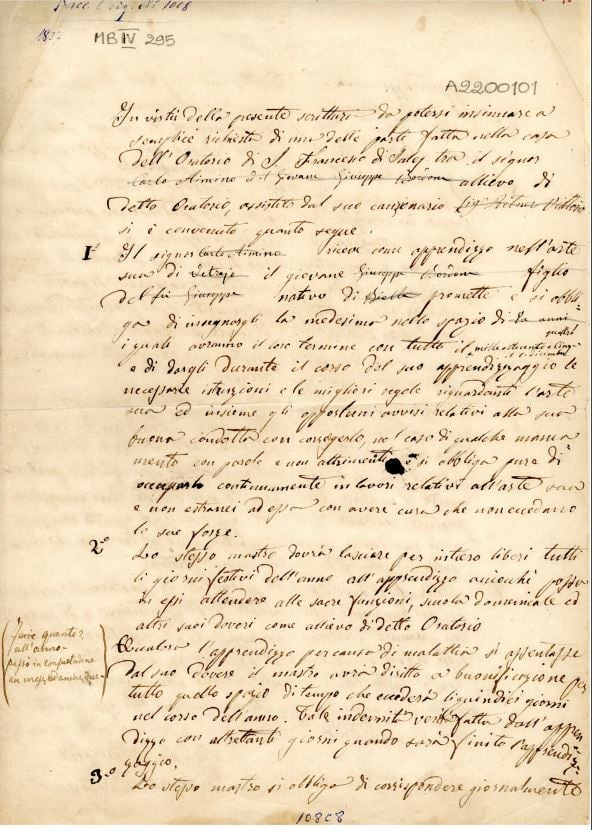 Orig. N° 1008
1
1837
MB IV 295
A2200101
In virtù della presente scrittura da potersi insinuare a
semplice richiesta di una delle parti fatta nella casa
dell'Oratorio di S. Francesco di Sales tra il signor
Carlo Aimino e il Giovane Giuseppe Bordone allievo di
detto Oratorio, assistito dal suo
si è convenuto quanto segue.
1° Il signor Carlo Aimino riceve come apprendizzo nell'arte
sua di Vetraje il giovane Giuseppe Bordone figlio
del fu Giuseppe nativo di Biella promette e si obbli-
ga di insegnargli la medesima nello spazio di tre anni
i quali avranno il loro termine con tutto il
e di dargli durante il corso del suo apprendizzaggio le
necessarie istruzioni e le migliori regole riguardanti l'arte
sua ed insieme gli opportuni avvisi relativi alla sua
buona condotta con correggerlo, nel caso di qualche manca
mento con parole e non altrimenti e si obbliga pure di
occuparlo continuamente in lavori relativi all'arte sua
e non estranei ad essa con avere cura che non eccedano
le sue forze.
2° Lo stesso mastro dovrà lasciare per intiero liberi tutti
li giorni festivi dell'anno all'apprendizzo acciocchè possa
in essi attendere alle sacre funzioni, scuola domenicale ed
altri suoi doveri come allievo di detto Oratorio
all'anno
Qualora l'apprendizzo per causa di malattia si assentasse
dal suo dovere il mastro avrà diritto a buonificazione per
tutto quello spazio di tempo che eccederà li quindici giorni
nel corso dell'anno. Tale indennità verrà fatta dall'appren
dizzo con altrettanti giorni quando sarà finito l'apprendiz-
zaggio.
3° Lo stesso mastro si obbliga di corrispondere giornalmente